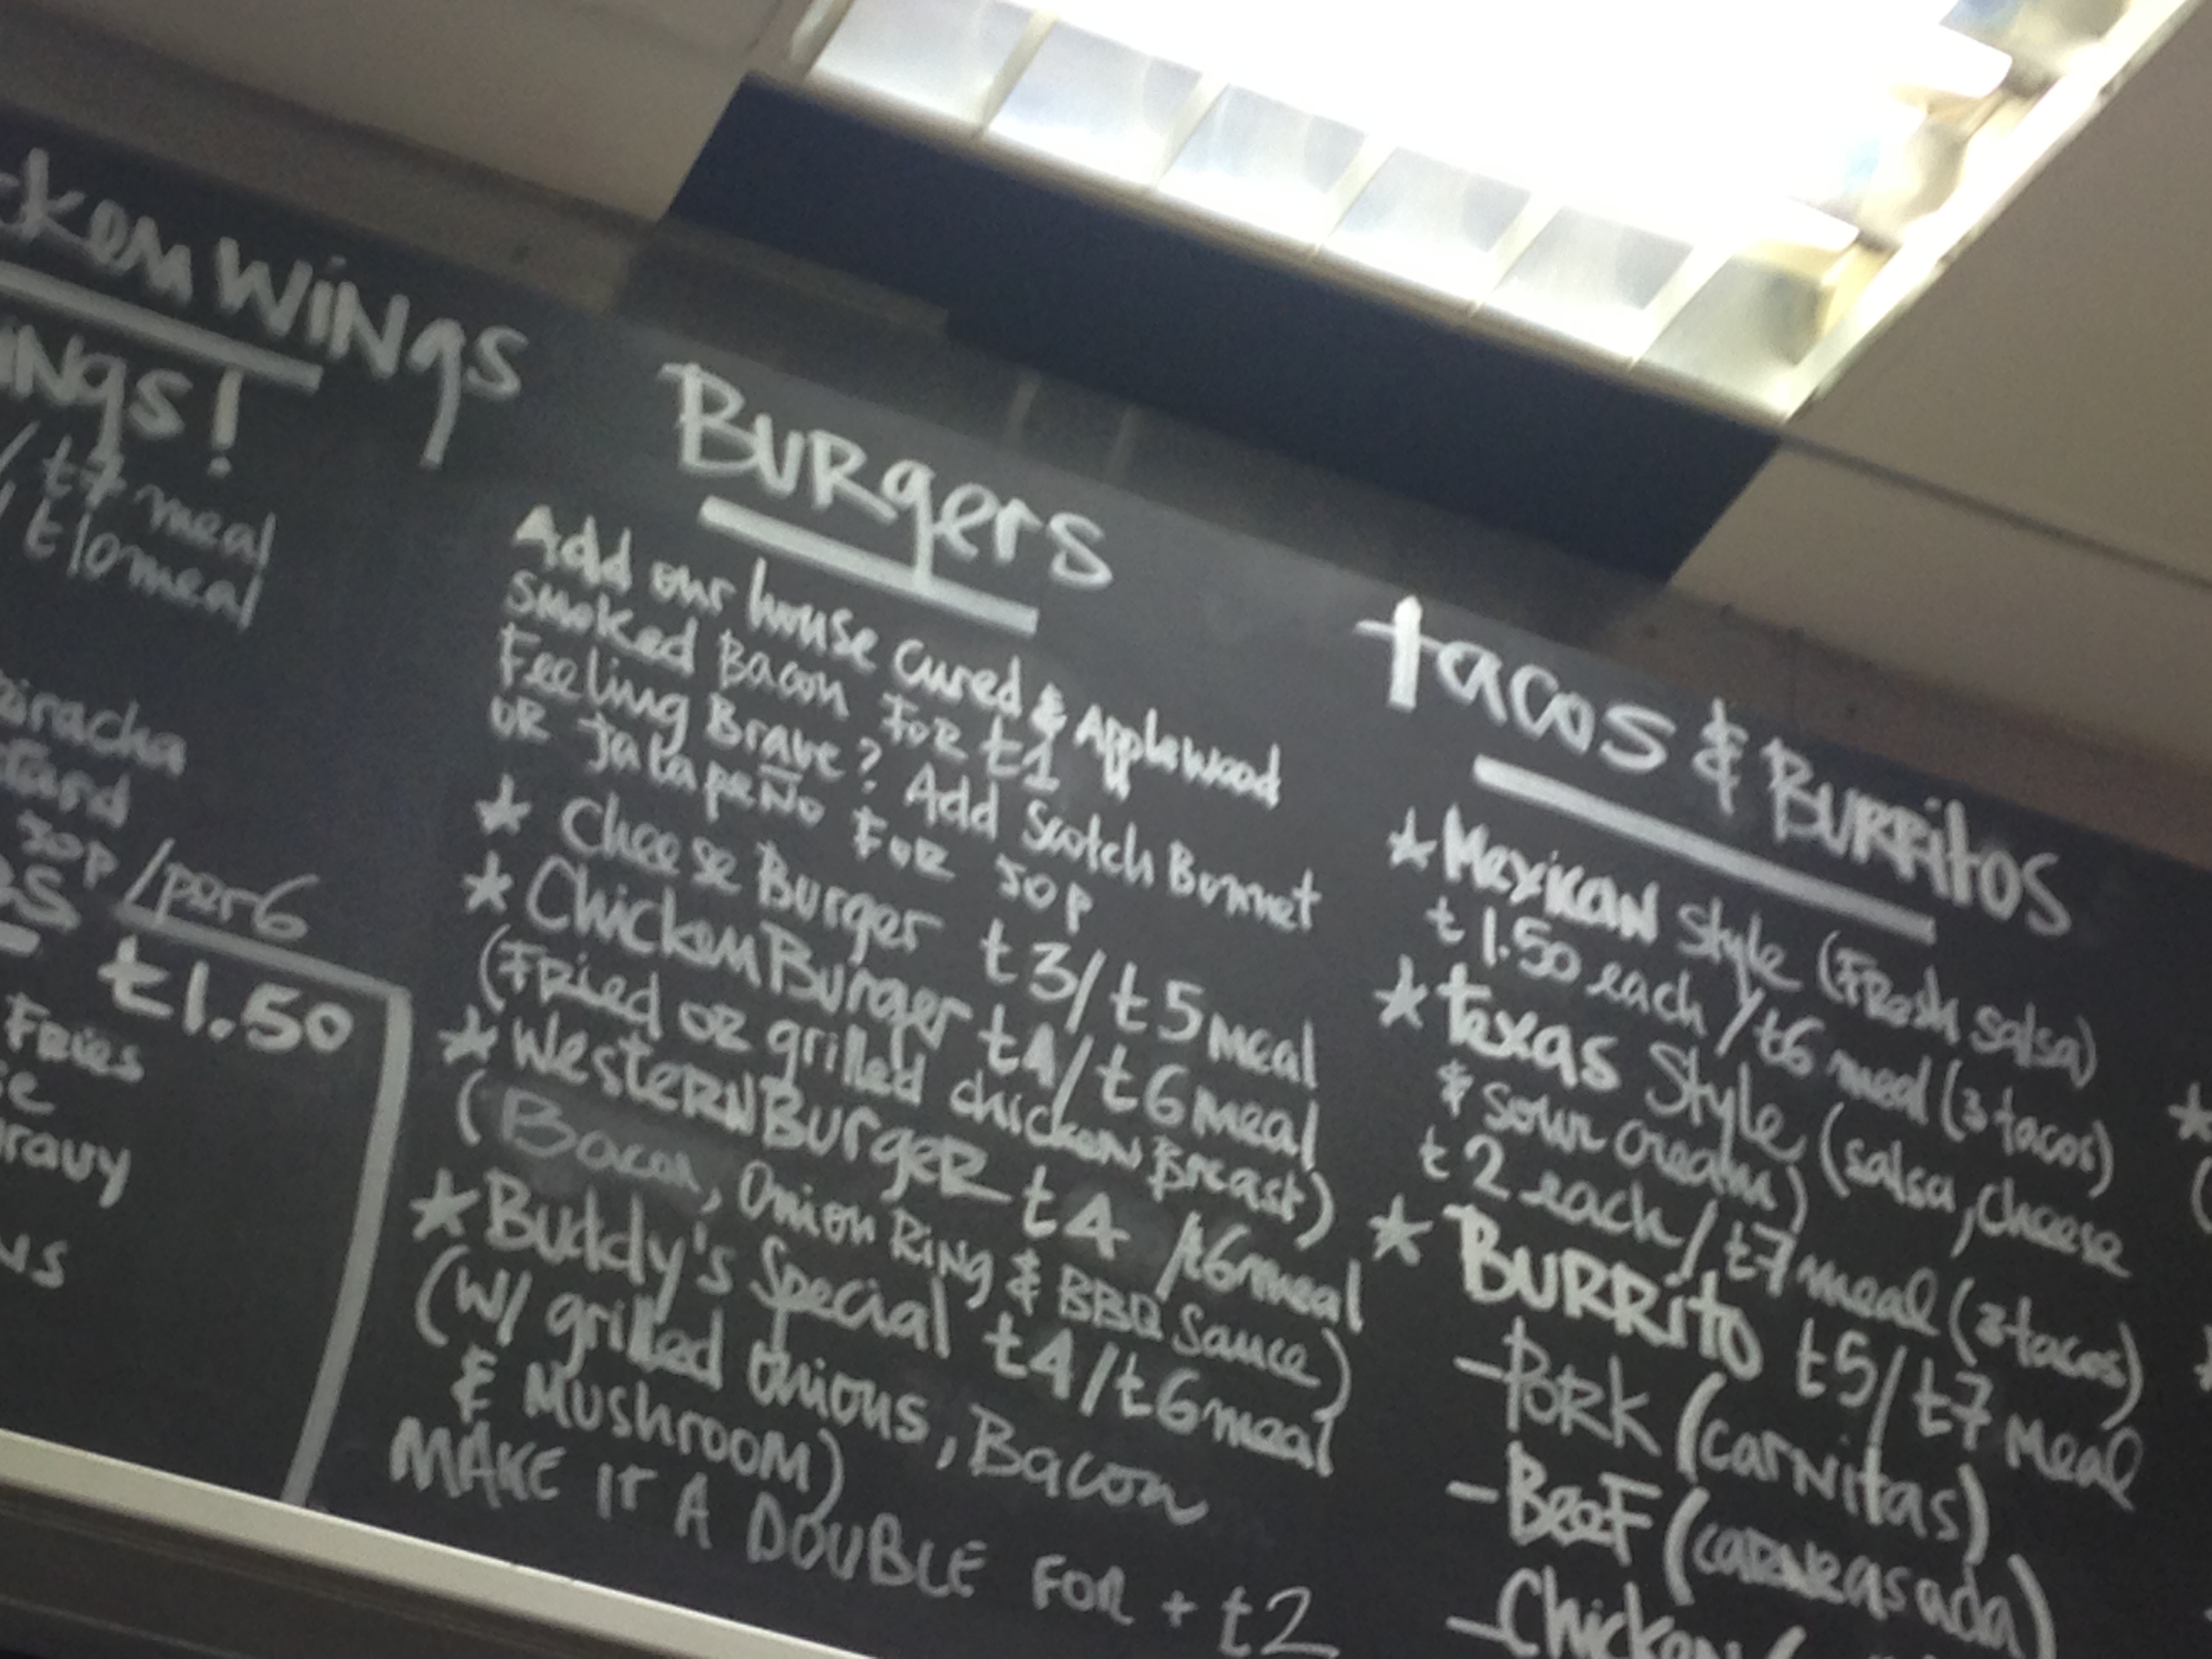 WINgs
INgs!
/ t7 meal
/ t10 meal
30p /per6
t1.50
Fries
Burgers
Add our house cured & Applewood
smoked Bacon FOR t1
Feeling Brave? Add Scotch Bonnet
OR JalapeÑo FOR 50p
★ Cheese Burger t3/t5 meal
★ Chicken Burger t4/t6 meal
(Fried or grilled chicken Breast)
★ Western Burger t4 /t6 meal
(Bacon, Onion Ring & BBQ Sauce)
★ Buddy's Special t4/t6 meal
(w/ grilled onions, Bacon
& Mushroom)
MAKE IT A DOUBLE FOR + t2
tacos & BURRitos
★ Mexican Style (Fresh salsa)
t1.50 each / t6 meal (3 tacos)
★ texas Style (salsa, cheese
& sour cream)
t2 each / t7 meal (3 tacos)
★ BURRito t5/t7 meal
- PORK (carnitas)
- BeeF (carneasada)
- Chicken (